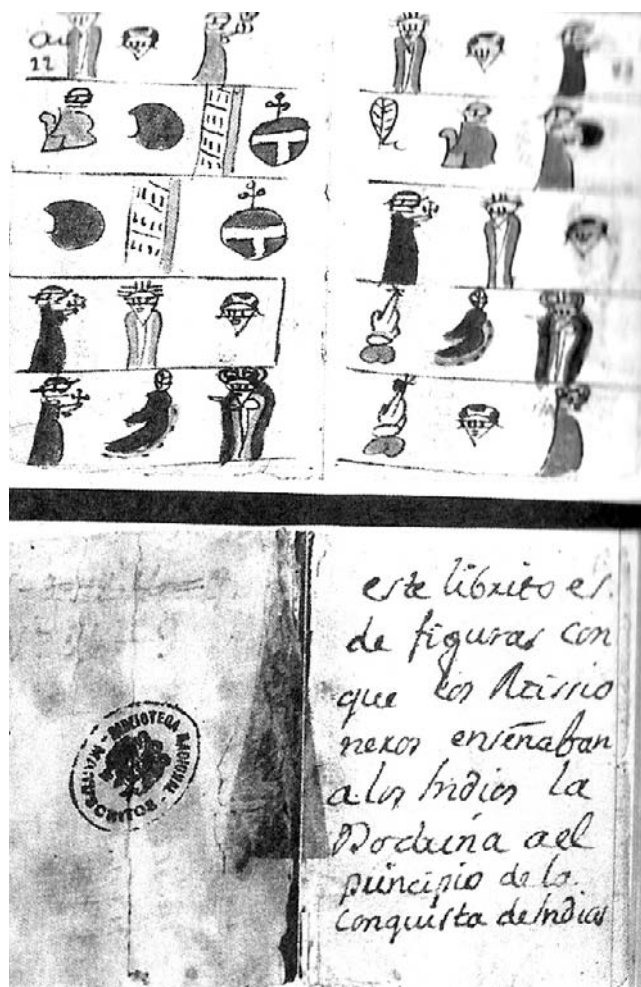 BIBLIOTECA NACIONAL
MANUSCRITOS
este librito es
de figuras con
que los Missio
neros enseñaban
a los Indios la
Doctrina a el
principio de la
conquista de Indias